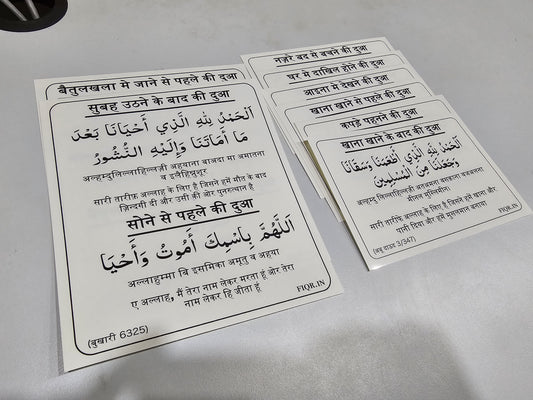 बैतुलखला मे जाने से पहले की दुआ
सुबह उठने के बाद की दुआ
اَلْحَمْدُ لِلّٰهِ الَّذِي أَحْيَانَا بَعْدَ
مَا أَمَاتَنَا وَإِلَيْهِ النُّشُورُ
अल्हम्दुलिल्लाहिल्लज़ी अहयाना बाअदा मा अमातना
व इलैहिन्नुशूर
सारी तारीफ़ अल्लाह के लिए है जिसने हमें मौत के बाद
ज़िन्दगी दी और उसी की ओर पुनरुत्थान है
सोने से पहले की दुआ
اَللّٰهُمَّ بِاسْمِكَ أَمُوتُ وَأَحْيَا
अल्लाहुम्मा बि इसमिका अमूतु व अहया
ए अल्लाह, मैं तेरा नाम लेकर मरता हूं और तेरा
नाम लेकर हि जीता हूं
(बुखारी 6325)
FIQR.IN
नज़रे बद से बचने की दुआ
घर मे दाखिल होने की दुआ
आइना मे देखने की दुआ
खाना खाने से पहले की दुआ
कपड़े पहनने की दुआ
खाना खाने के बाद की दुआ
اَلْحَمْدُ لِلّٰهِ الَّذِي أَطْعَمَنَا وَسَقَانَا
وَجَعَلَنَا مِنَ الْمُسْلِمِينَ
सारी तारीफें अल्लाह के लिए है जिसने हमें खाना और
पानी दिया और हमें मुसलमान बनाया
(अबु दाउद 3/347)
FIQR.IN